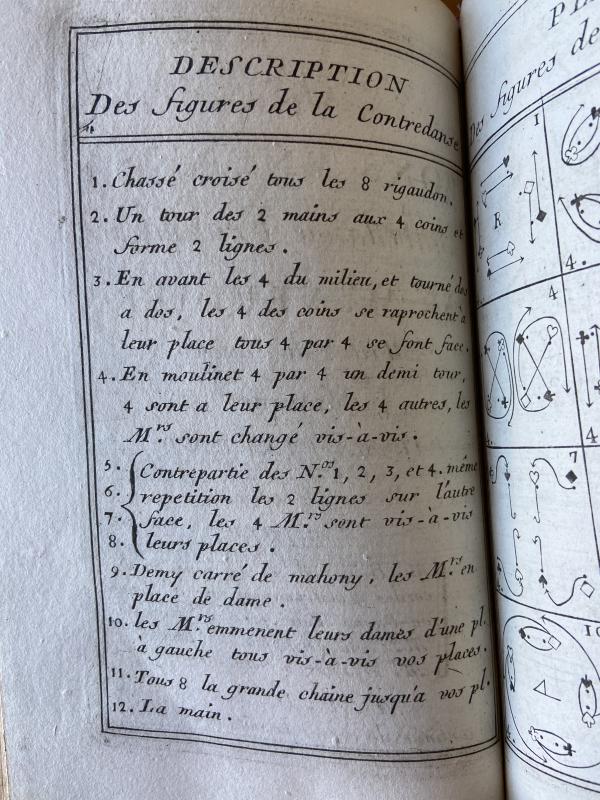 DESCRIPTION
Des figures de la Contredanse
1. Chassé croisé tous les 8 rigaudon.
2. Un tour des 2 mains aux 4 coins et
forme 2 lignes.
3. En avant les 4 du milieu, et tourné dos
a dos, les 4 des coins se raprochent a
leur place tous 4 par 4 se font face.
4. En moulinet 4 par 4 un demi tour,
4 sont a leur place, les 4 autres, les
M.rs sont changé vis-à-vis.
5. Contrepartie des N.os 1, 2, 3, et 4. même
6. repetition les 2 lignes sur l'autre
7. face, les 4 M.rs sont vis-à-vis
8. leurs places.
9. Demy carré de mahony, les M.rs en
place de dame.
10. les M.rs emmenent leurs dames d'une pl.
à gauche tous vis-à-vis vos places.
11. Tous 8 la grande chaine jusqu'a vos pl.
12. La main.
PLA
Des figures de
1
R
4.
4
4
7
10